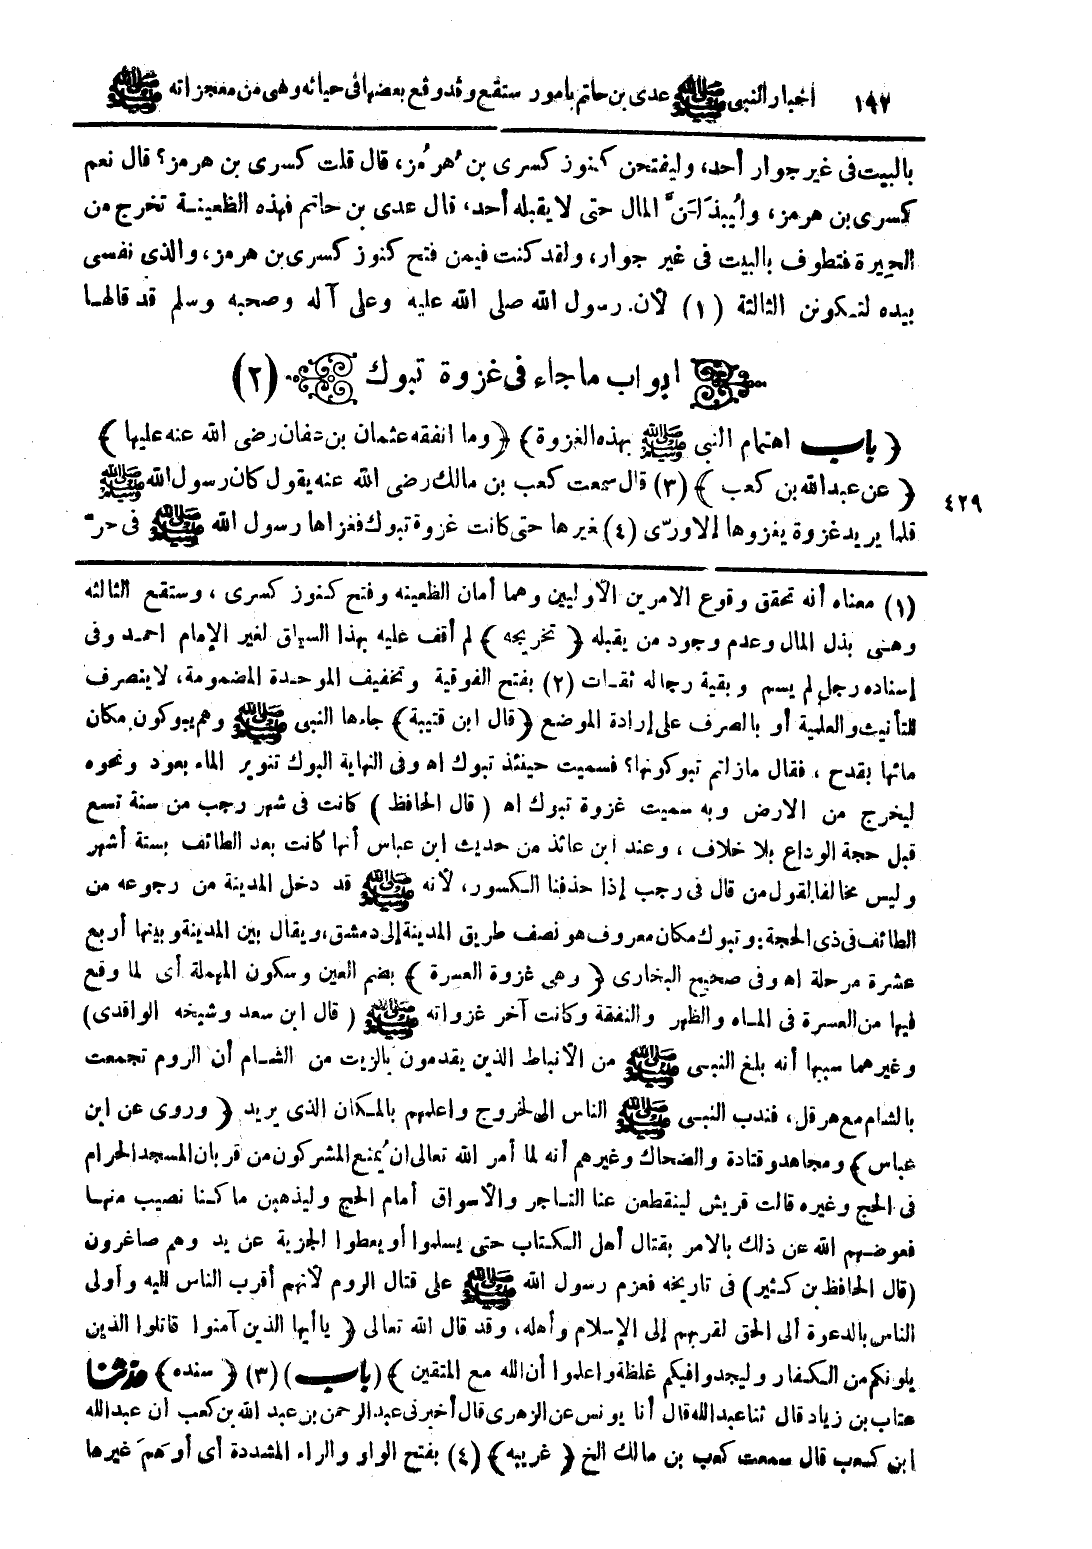 ١٩٧ اخبار النبى ﷺ عدى بن حاتم بأمور ستقع وقد وقع بعضها فى حياته وهى من معجزاته ﷺ
بالبيت فى غير جوار أحد، وليفتحن كنوز كسرى بن هُرمُز، قال قلت كسرى بن هرمز؟ قال نعم
كسرى بن هرمز، وليُبذَلَنَّ المال حتى لا يقبله أحد، قال عدى بن حاتم فهذه الظعينة تخرج من
الحيرة فتطوف بالبيت فى غير جوار، ولقد كنت فيمن فتح كنوز كسرى بن هرمز، والذى نفسى
بيده لتكونن الثالثة (١) لأن رسول الله صلى الله عليه وعلى آله وصحبه وسلم قد قالها
ابواب ما جاء فى غزوة تبوك (٢)
﴿ باب اهتمام النبى ﷺ بهذه الغزوة﴾ ﴿وما انفقه عثمان بن عفان رضى الله عنه عليها ﴾
٤٢٩ ﴿ عن عبد الله بن كعب ﴾ (٣) قال سمعت كعب بن مالك رضى الله عنه يقول كان رسول الله ﷺ
قلما يريد غزوة يغزوها إلا ورّى (٤) بغيرها حتى كانت غزوة تبوك فغزاها رسول الله ﷺ فى حرّ
(١) معناه أنه تحقق وقوع الامرين الأوليين وهما أمان الظعينه وفتح كنوز كسرى ، وستقع الثالثه
وهى بذل المال وعدم وجود من يقبله ﴿ تخريجه ﴾ لم أقف عليه بهذا السياق لغير الإمام احمد وفى
إسناده رجل لم يسم وبقية رجاله ثقات (٢) بفتح الفوقية وتخفيف الموحدة المضمومة، لا ينصرف
للتأنيث والعلمية أو بالصرف على إرادة الموضع ﴿قال ابن قتيبة﴾ جاءها النبى ﷺ وهم يبوكون مكان
مائها بقدح ، فقال مازلتم تبوكونها؟ فسميت حينئذ تبوك اه وفى النهاية البوك تثوير الماء بعود ونحوه
ليخرج من الارض وبه سميت غزوة تبوك اه ( قال الحافظ ) كانت فى شهر رجب من سنة تسع
قبل حجة الوداع بلا خلاف ، وعند ابن عائذ من حديث ابن عباس أنها كانت بعد الطائف بستة أشهر
وليس مخالفا لقول من قال فى رجب إذا حذفنا الكسور، لأنه ﷺ قد دخل المدينة من رجوعه من
الطائف فى ذى الحجة: وتبوك مكان معروف هو نصف طريق المدينة إلى دمشق، ويقال بين المدينة وبينها أربع
عشرة مرحلة اه وفى صحيح البخارى ﴿ وهى غزوة العسرة ﴾ بضم العين وسكون المهملة أى لما وقع
فيها من العسرة فى الماء والظهر والنفقة وكانت آخر غزواته ﷺ ( قال ابن سعد وشيخه الواقدى)
وغيرهما سببها أنه بلغ النبى ﷺ من الأنباط الذين يقدمون بالزيت من الشام أن الروم تجمعت
بالشام مع هرقل، فندب النبى ﷺ الناس الى الخروج واعلمهم بالمكان الذى يريد ﴿ وروى عن ابن
عباس﴾ ومجاهد وقتادة والضحاك وغيرهم أنه لما أمر الله تعالى ان يُمنع المشركون من قربان المسجد الحرام
فى الحج وغيره قالت قريش لينقطعن عنا التاجر والأسواق أمام الحج وليذهبن ما كنا نصيب منها
فعوضهم الله عن ذلك بالامر بقتال أهل الكتاب حتى يسلموا أو يعطوا الجزية عن يد وهم صاغرون
(قال الحافظ بن كثير) فى تاريخه فعزم رسول الله ﷺ على قتال الروم لأنهم أقرب الناس اليه وأولى
الناس بالدعوة الى الحق لقربهم إلى الإسلام وأهله، وقد قال الله تعالى ﴿ يا أيها الذين آمنوا قاتلوا الذين
يلونكم من الكفار وليجدوا فيكم غلظة واعلموا أن الله مع المتقين ﴾ (باب) (٣) ﴿ سنده ﴾ حدثنا
عتاب بن زياد قال ثنا عبد الله قال أنا يونس عن الزهرى قال أخبرنى عبد الرحمن بن عبد الله بن كعب أن عبد الله
ابن كعب قال سمعت كعب بن مالك الخ ﴿ غريبه ﴾ (٤) بفتح الواو والراء المشددة أى أوهمَ غيرها